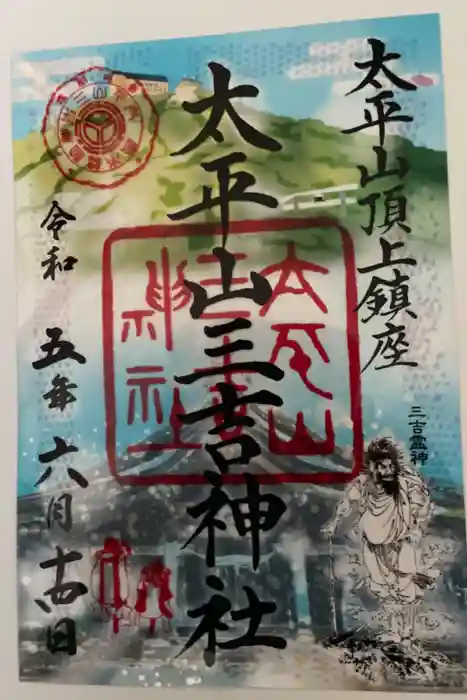 太平山頂上鎮座
太平山三吉神社
令和五年六月吉日
三吉霊神
太平山
三吉
神社